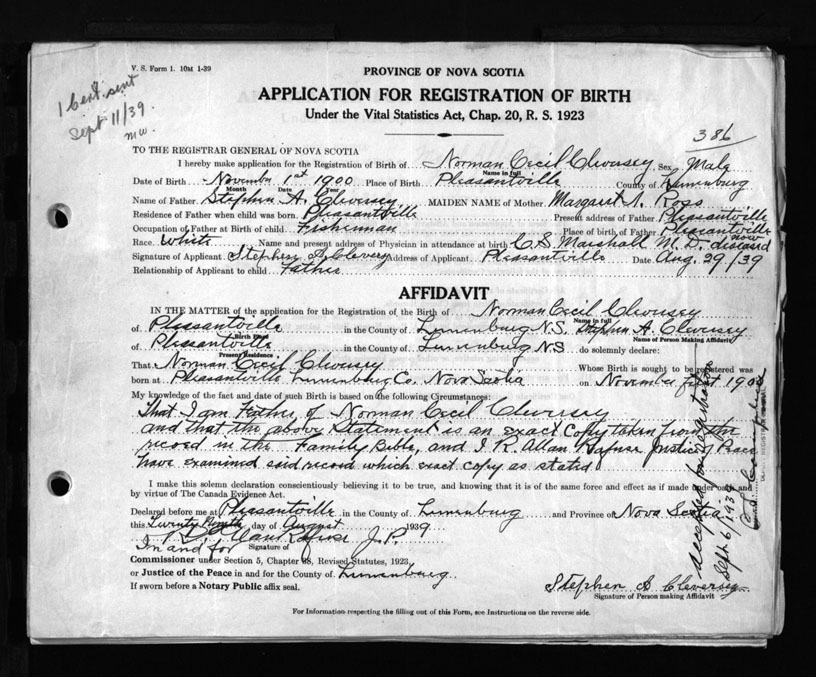 V. S. Form 1. 10M 1-39
1 Cert. sent
Sept 11/39.
mw.
PROVINCE OF NOVA SCOTIA
APPLICATION FOR REGISTRATION OF BIRTH
Under the Vital Statistics Act, Chap. 20, R. S. 1923
386
TO THE REGISTRAR GENERAL OF NOVA SCOTIA
I hereby make application for Registration of Birth of Norman Cecil Cleversey Sex Male
Name in full
Date of Birth November 1st 1900 Place of Birth Pleasantville County of Lunenburg
Month Date Year
Name of Father Stephen A. Cleversey MAIDEN NAME of Mother Margaret A. Ross
Residence of Father when child was born Pleasantville Present address of Father Pleasantville
Occupation of Father at Birth of child Fisherman Place of birth of Father Pleasantville
Race White Name and present address of Physician in attendance at birth C. S. Marshall M. D. now diseased
Signature of Applicant Stephen A Clevery Address of Applicant Pleasantville Date Aug. 29/39
Relationship of Applicant to child Father
AFFIDAVIT
IN THE MATTER of the application for the Registration of the Birth of Norman Cecil Cleversey
Name in full
of Pleasantville in the County of Lunenburg N.S Stephen A. Cleversey
Birth Place Name of Person Making Affidavit
of Pleasantville in the County of Lunenburg N.S do solemnly declare:
Present Residence
That Norman Cecil Cleversey Whose Birth is sought to be registered was
born at Pleasantville Lunenburg Co. Nova Scotia on November first 1900
My knowledge of the fact and date of such Birth is based on the following Circumstances:
That I am Father of Norman Cecil Cleversey
and that the above Statement is an exact Copy taken from the
record in the Family Bible, and I R. Allan Rafuse Justice of Peace
have examined said record which exact copy as stated
I make this solemn declaration conscientiously believing it to be true, and knowing that it is of the same force and effect as if made under oath and
by virtue of The Canada Evidence Act.
Declared before me at Pleasantville in the County of Lunenburg and Province of Nova Scotia
this Twenty Ninth day of August 1939
R. Allan Rafuse J.P.
In and for Signature of
Commissioner under Section 5, Chapter 38, Revised Statutes, 1923,
or Justice of the Peace in and for the County of Lunenburg
If sworn before a Notary Public affix seal.
Stephen A Cleversey
Signature of Person making Affidavit
For Information respecting the filling out of this Form, see Instructions on the reverse side.
Accepted for registration
Sept. 6/1939